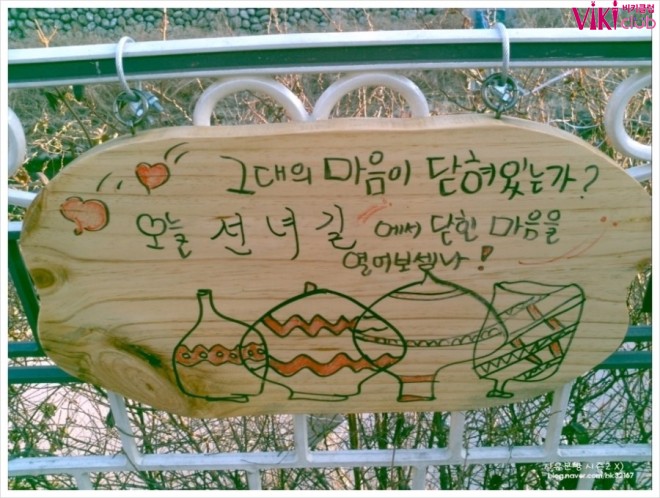 ViKi 비키클럽
club
그대의 마음이 닫혀있는가?
오늘 전녀길 에서 닫힌 마음을
열어보셈나!
blog.naver.com/hk32167